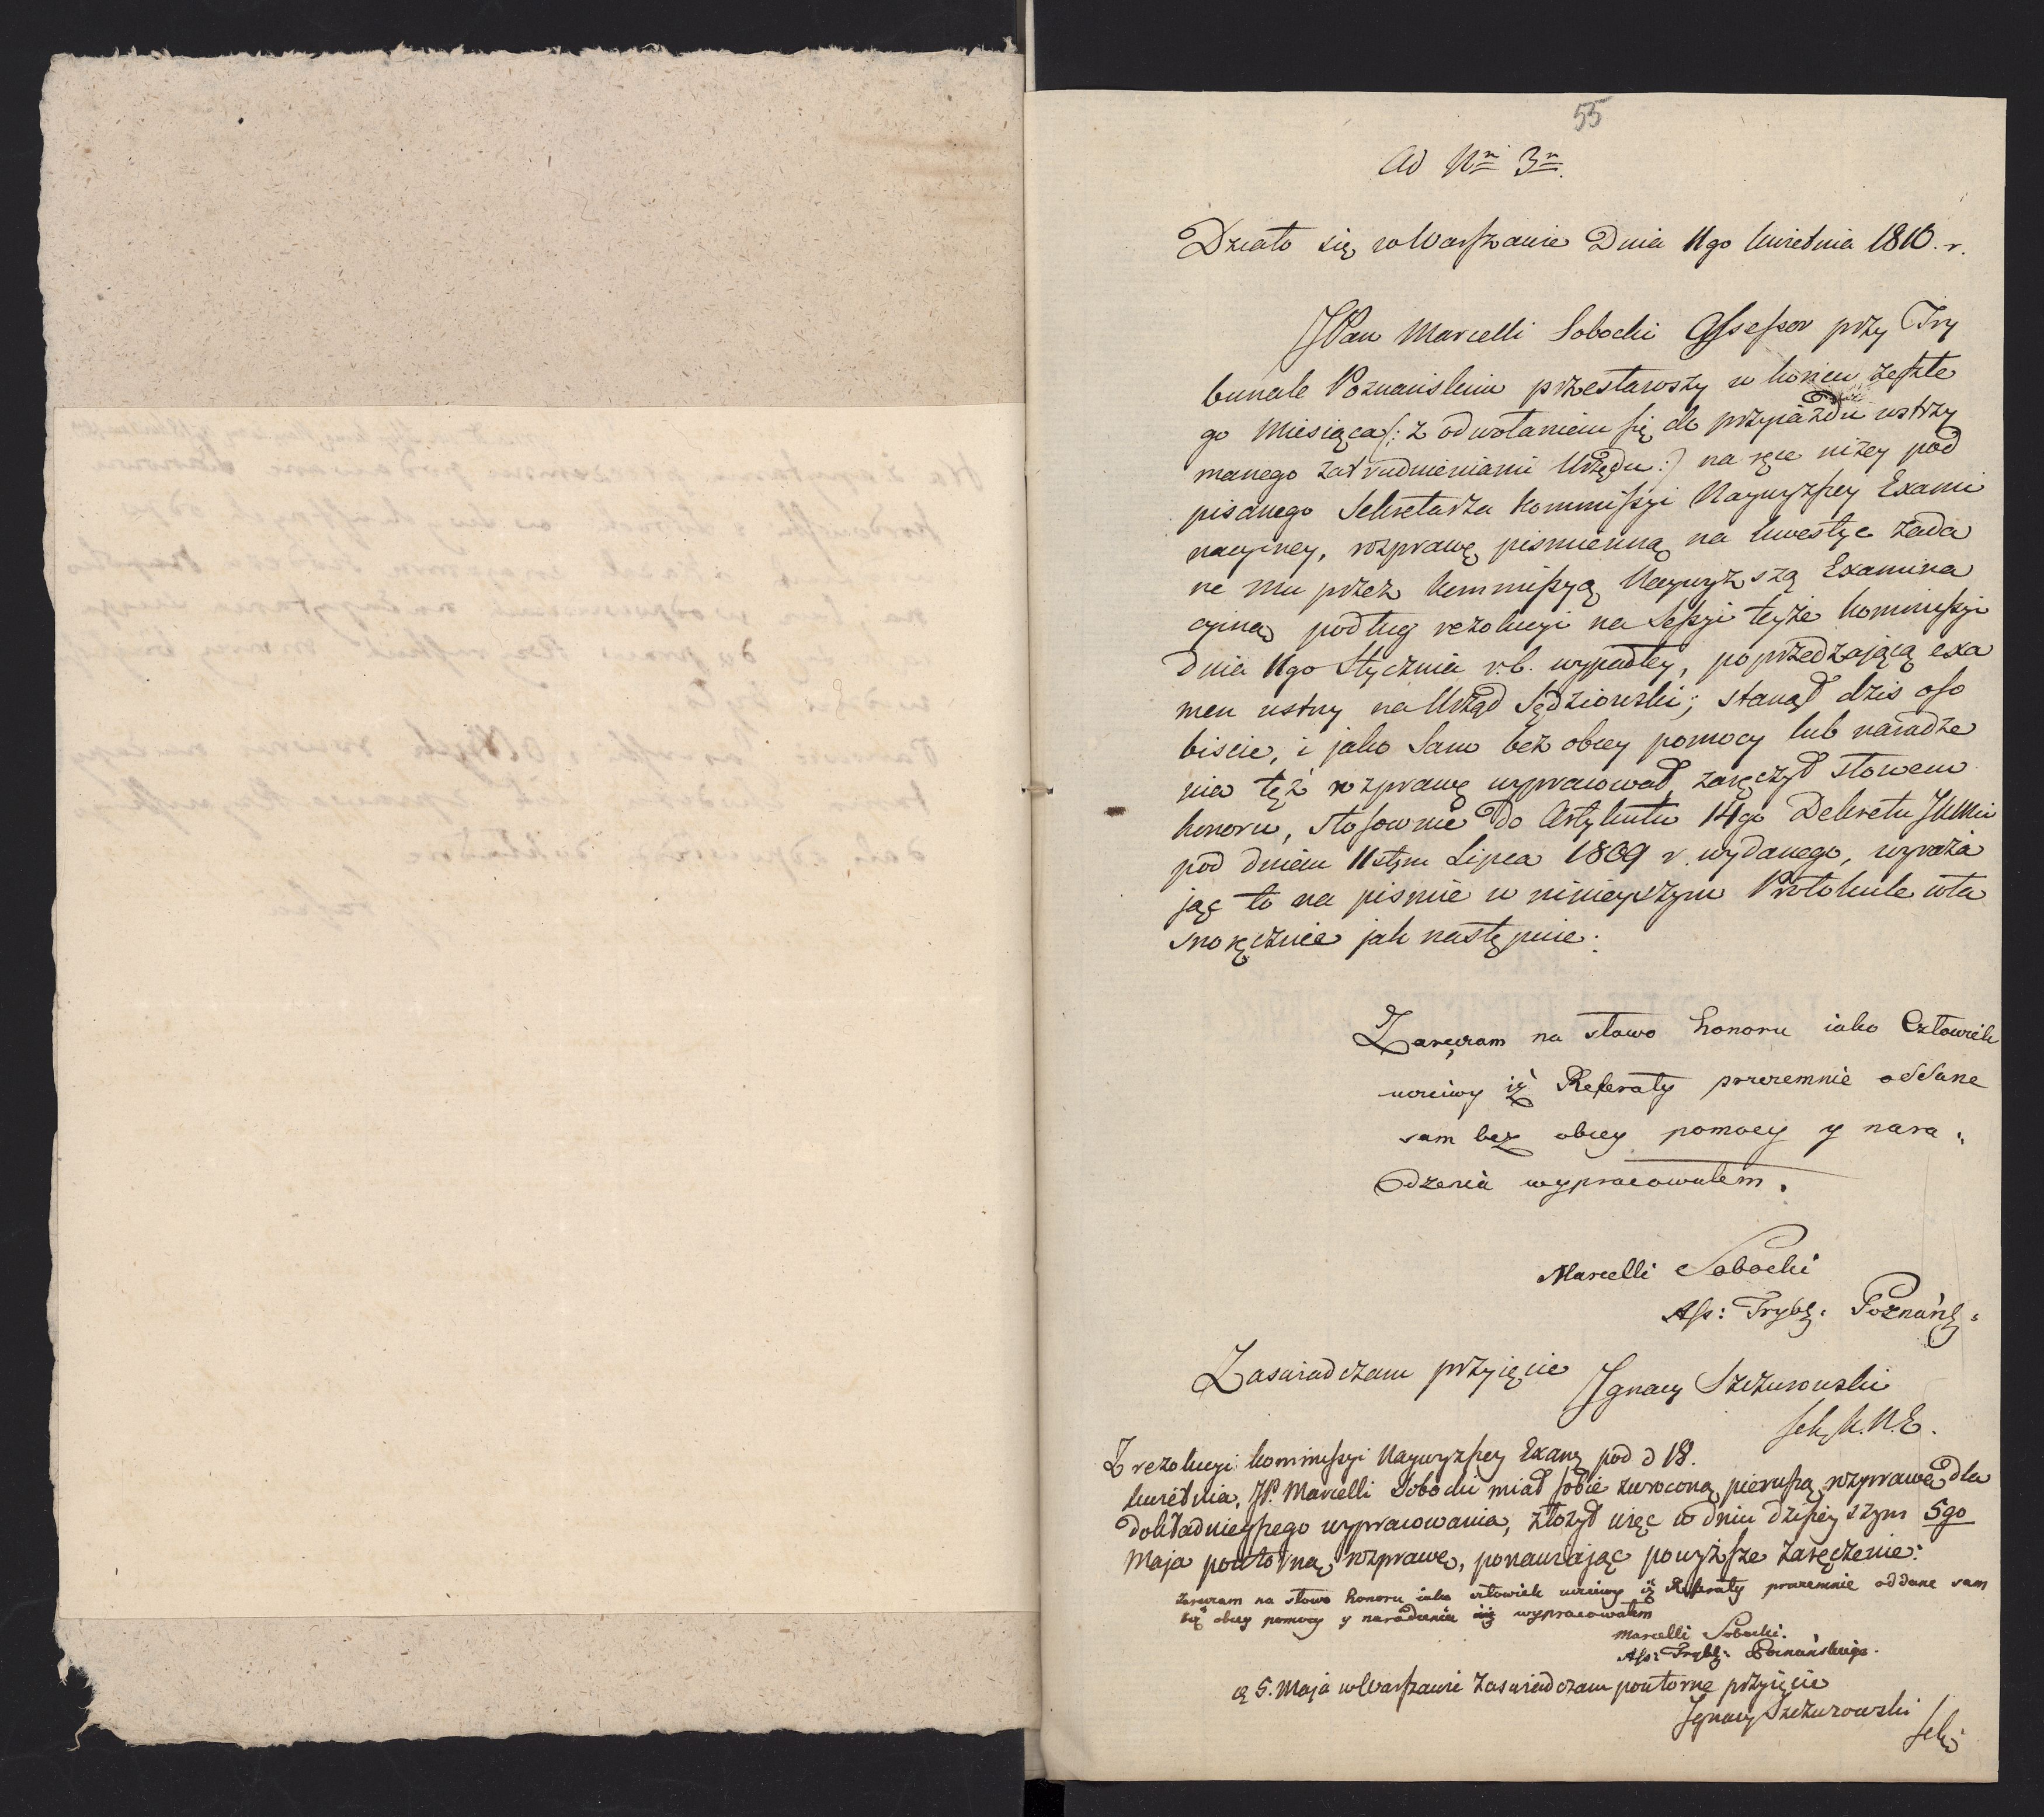 55
Ad Nm 3m.
Działo się w Warszawie Dnia 11go kwietnia 1810. r.
JPan Marcelli Sobocki Assessor przy Try
bunale Poznańskim przesławszy w końcu zeszłe
go Miesiąca (: z odwołaniem się do przyjazdu wstrzy
manego zatrudnieniami Urzędu :) na ręce niżey pod
pisanego Sekretarza Kommissyi Naywyższey Exami
nacyiney, rozprawę pismienną na kwestye zada
ne mu przez Kommissyą Naywyższą Examina
cyiną podług rezolucyi na Sessyi teyże Kommissyi
dnia 11go Stycznia r. b. wypadłey, poprzedzającą exa
men ustny na Urząd Sędziowski; stanął dziś oso
biście, i jako Sam bez obcey pomocy lub naradze
nia tęż rozprawę wypracował, zaręczył słowem
honoru, stosownie do Artykułu 14go Dekretu JKMci
pod dniem 11stym Lipca 1809 r. wydanego, wyraża
jąc to na pismie w ninieyszym Protokule wła
snoręcznie jak następuie:
Zaręczam na słowo honoru iako Człowiek
uczciwy iż Referaty przezemnie oddane
sam bez obcey pomocy y nara=
dzenia wypracowałem.
Marcelli Sobocki
Ass: Tryb: Poznańs:
Zaswiadczam przyięcie
Ignacy Szczurowski
Sek. K.N.E.
Z rezolucyi Kommissyi Naywyższey Exam: pod d 18.
kwietnia, JP. Marcelli Sobocki miał sobie zwroconą pierwszą rozprawę dla
dokładnieyszego wypracowania, złożył więc w dniu dzisieyszym 5go
Maja powtorną rozprawę, ponawiając powyższe zaręczenie:
Zaręczam na słowo honoru iako człowiek uczciwy iż Referaty przezemnie oddane sam
bez obcey pomocy y naradzenia się wypracowałem
Marcelli Sobocki.
Ass: Tryb: Poznańskiego.
d 5. Maja w Warszawie zaswiadczam powtorne przyięcie
Ignacy Szczurowski
Sek: